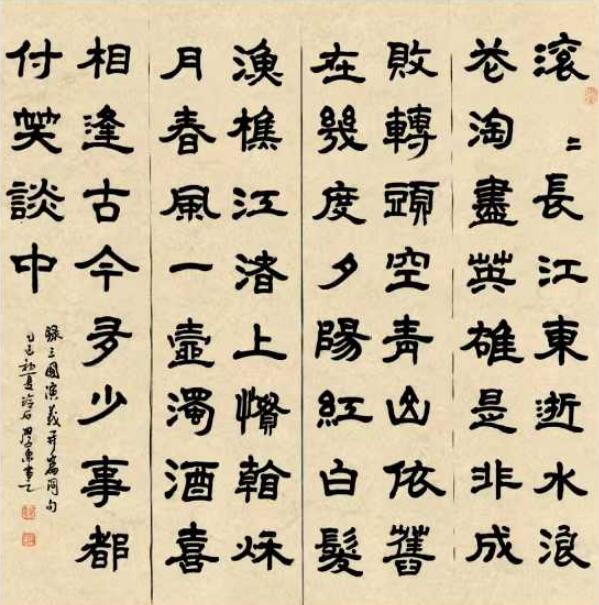 滚〻長江東逝水浪
花淘盡英雄是非成
敗轉頭空青山依舊
在幾度夕陽紅白髮
漁樵江渚上慣看秋
月春風一壺濁酒喜
相逢古今多少事都
付笑談中
録三國演義开篇词句
巳初夏